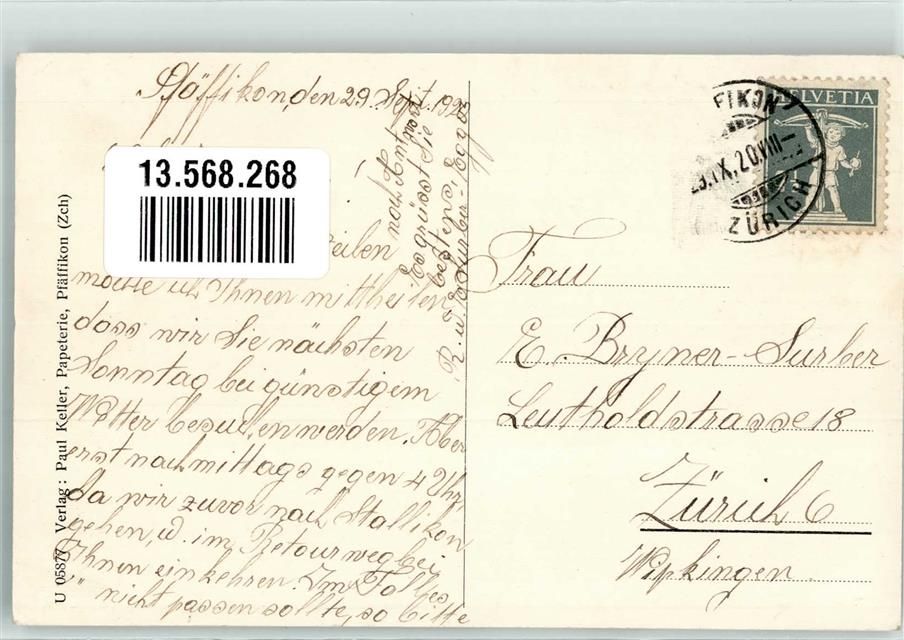 Pfäffikon, den 29. Sept. 192
13.568.268
Zeilen
möchte ich Ihnen mittheilen
dass wir Sie nächsten
Sonntag bei günstigem
Wetter besuchen werden. Aber
erst nachmittags gegen 4 Uhr
da wir zuvor nach Stallikon
gehen, u. im Retourweg bei
Ihnen einkehren. Im Falle es
nicht passen sollte, so bitte
noch Antwort
Es grüsst Sie
bestens,
R. u. E. Surber-
U 05877 Verlag: Paul Keller, Papeterie, Pfäffikon (Zch)
HELVETIA
FIKON
IX.20.VIII
ZÜRICH
Frau
E. Bryner-Surber
Leutholdstrasse 18
Zürich 6
Wipkingen